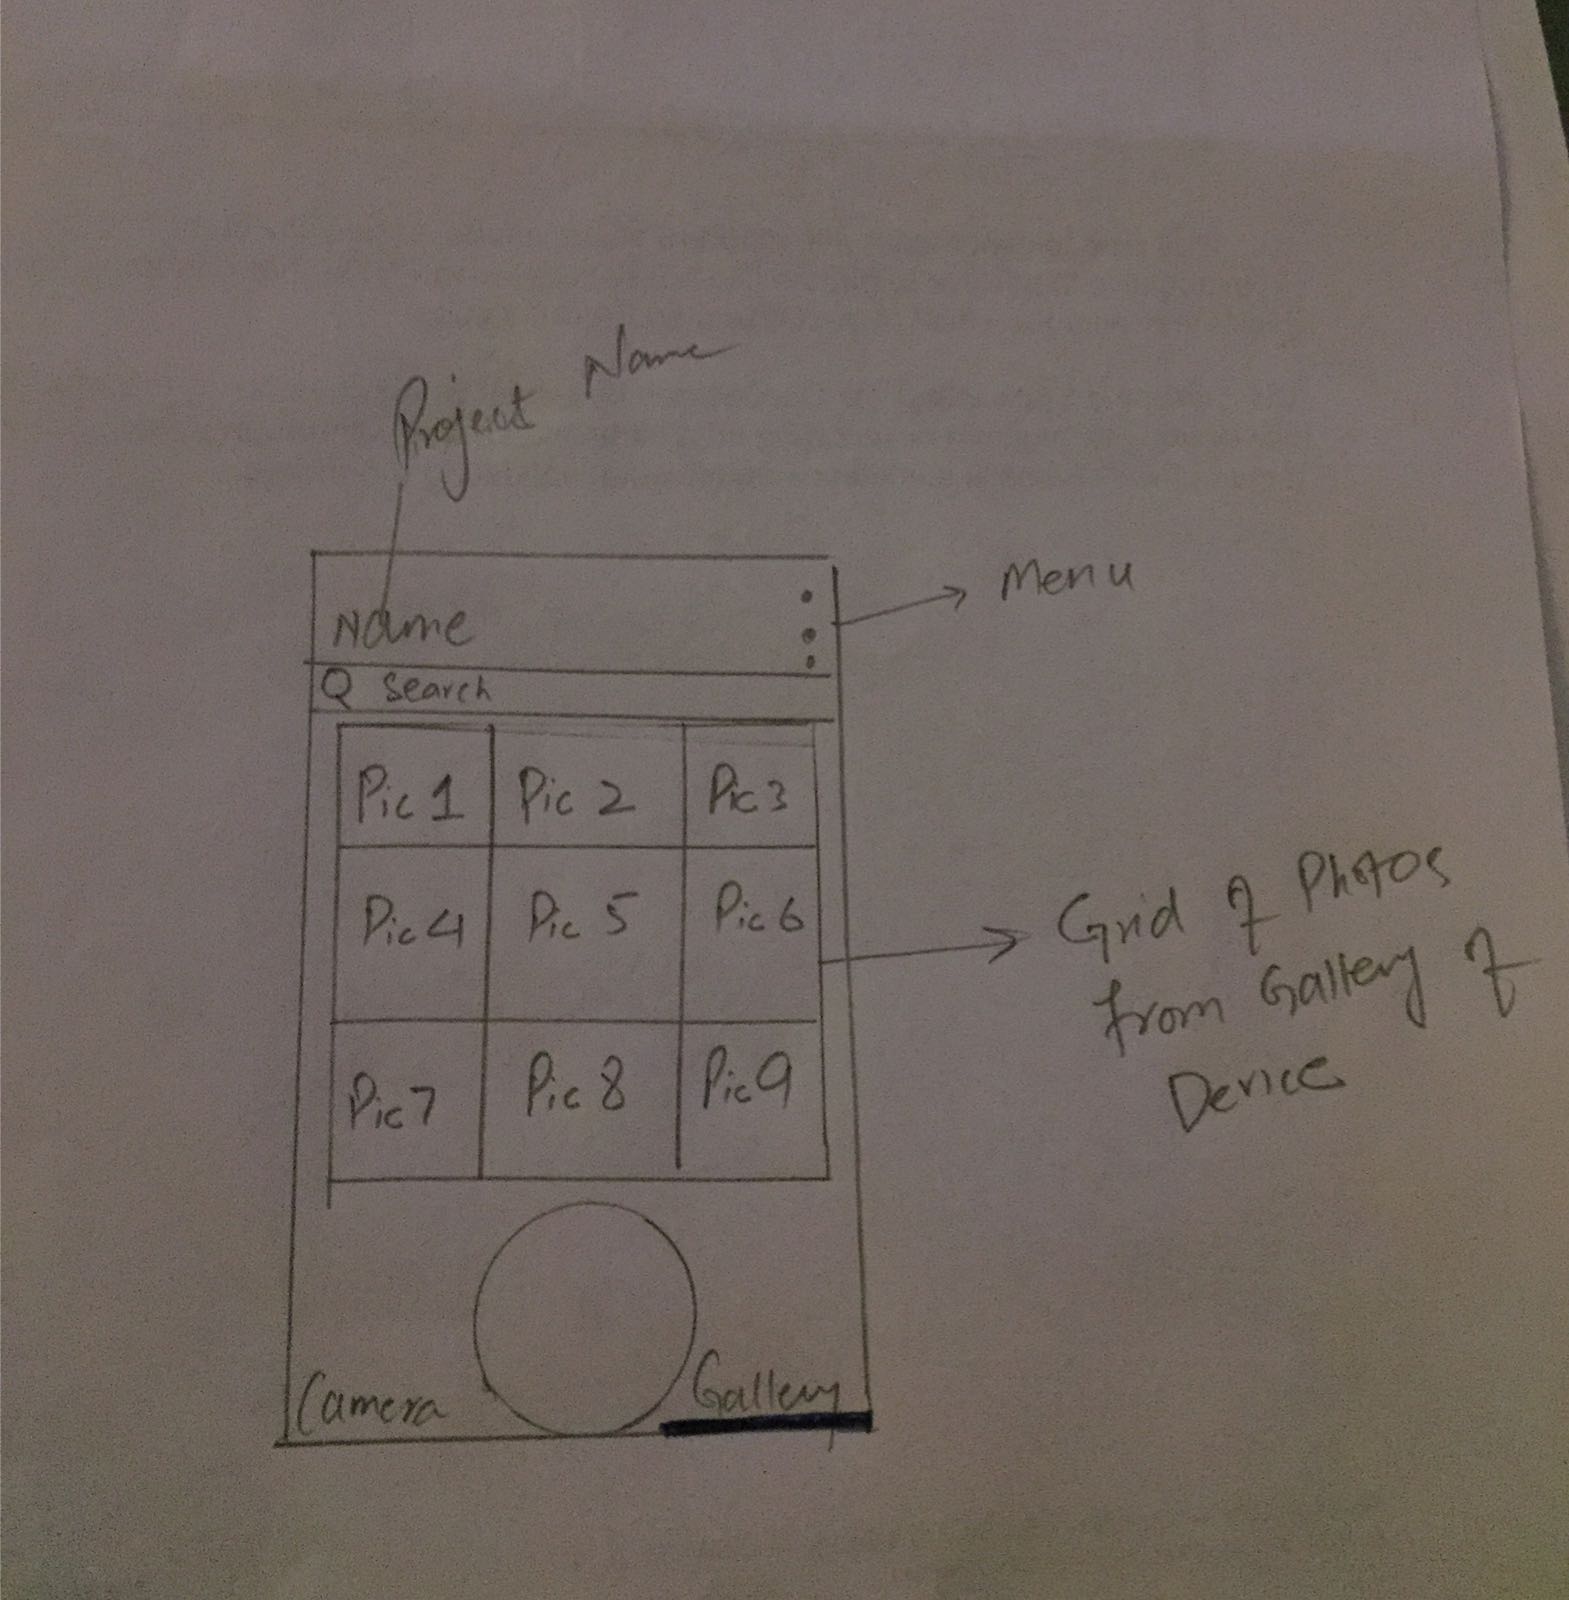 Project Name
Name
Menu
Search
Pic 1 Pic 2 Pic 3
Pic 4 Pic 5 Pic 6
Pic 7 Pic 8 Pic 9
Grid of Photos
from Gallery of
Device
Camera
Gallery